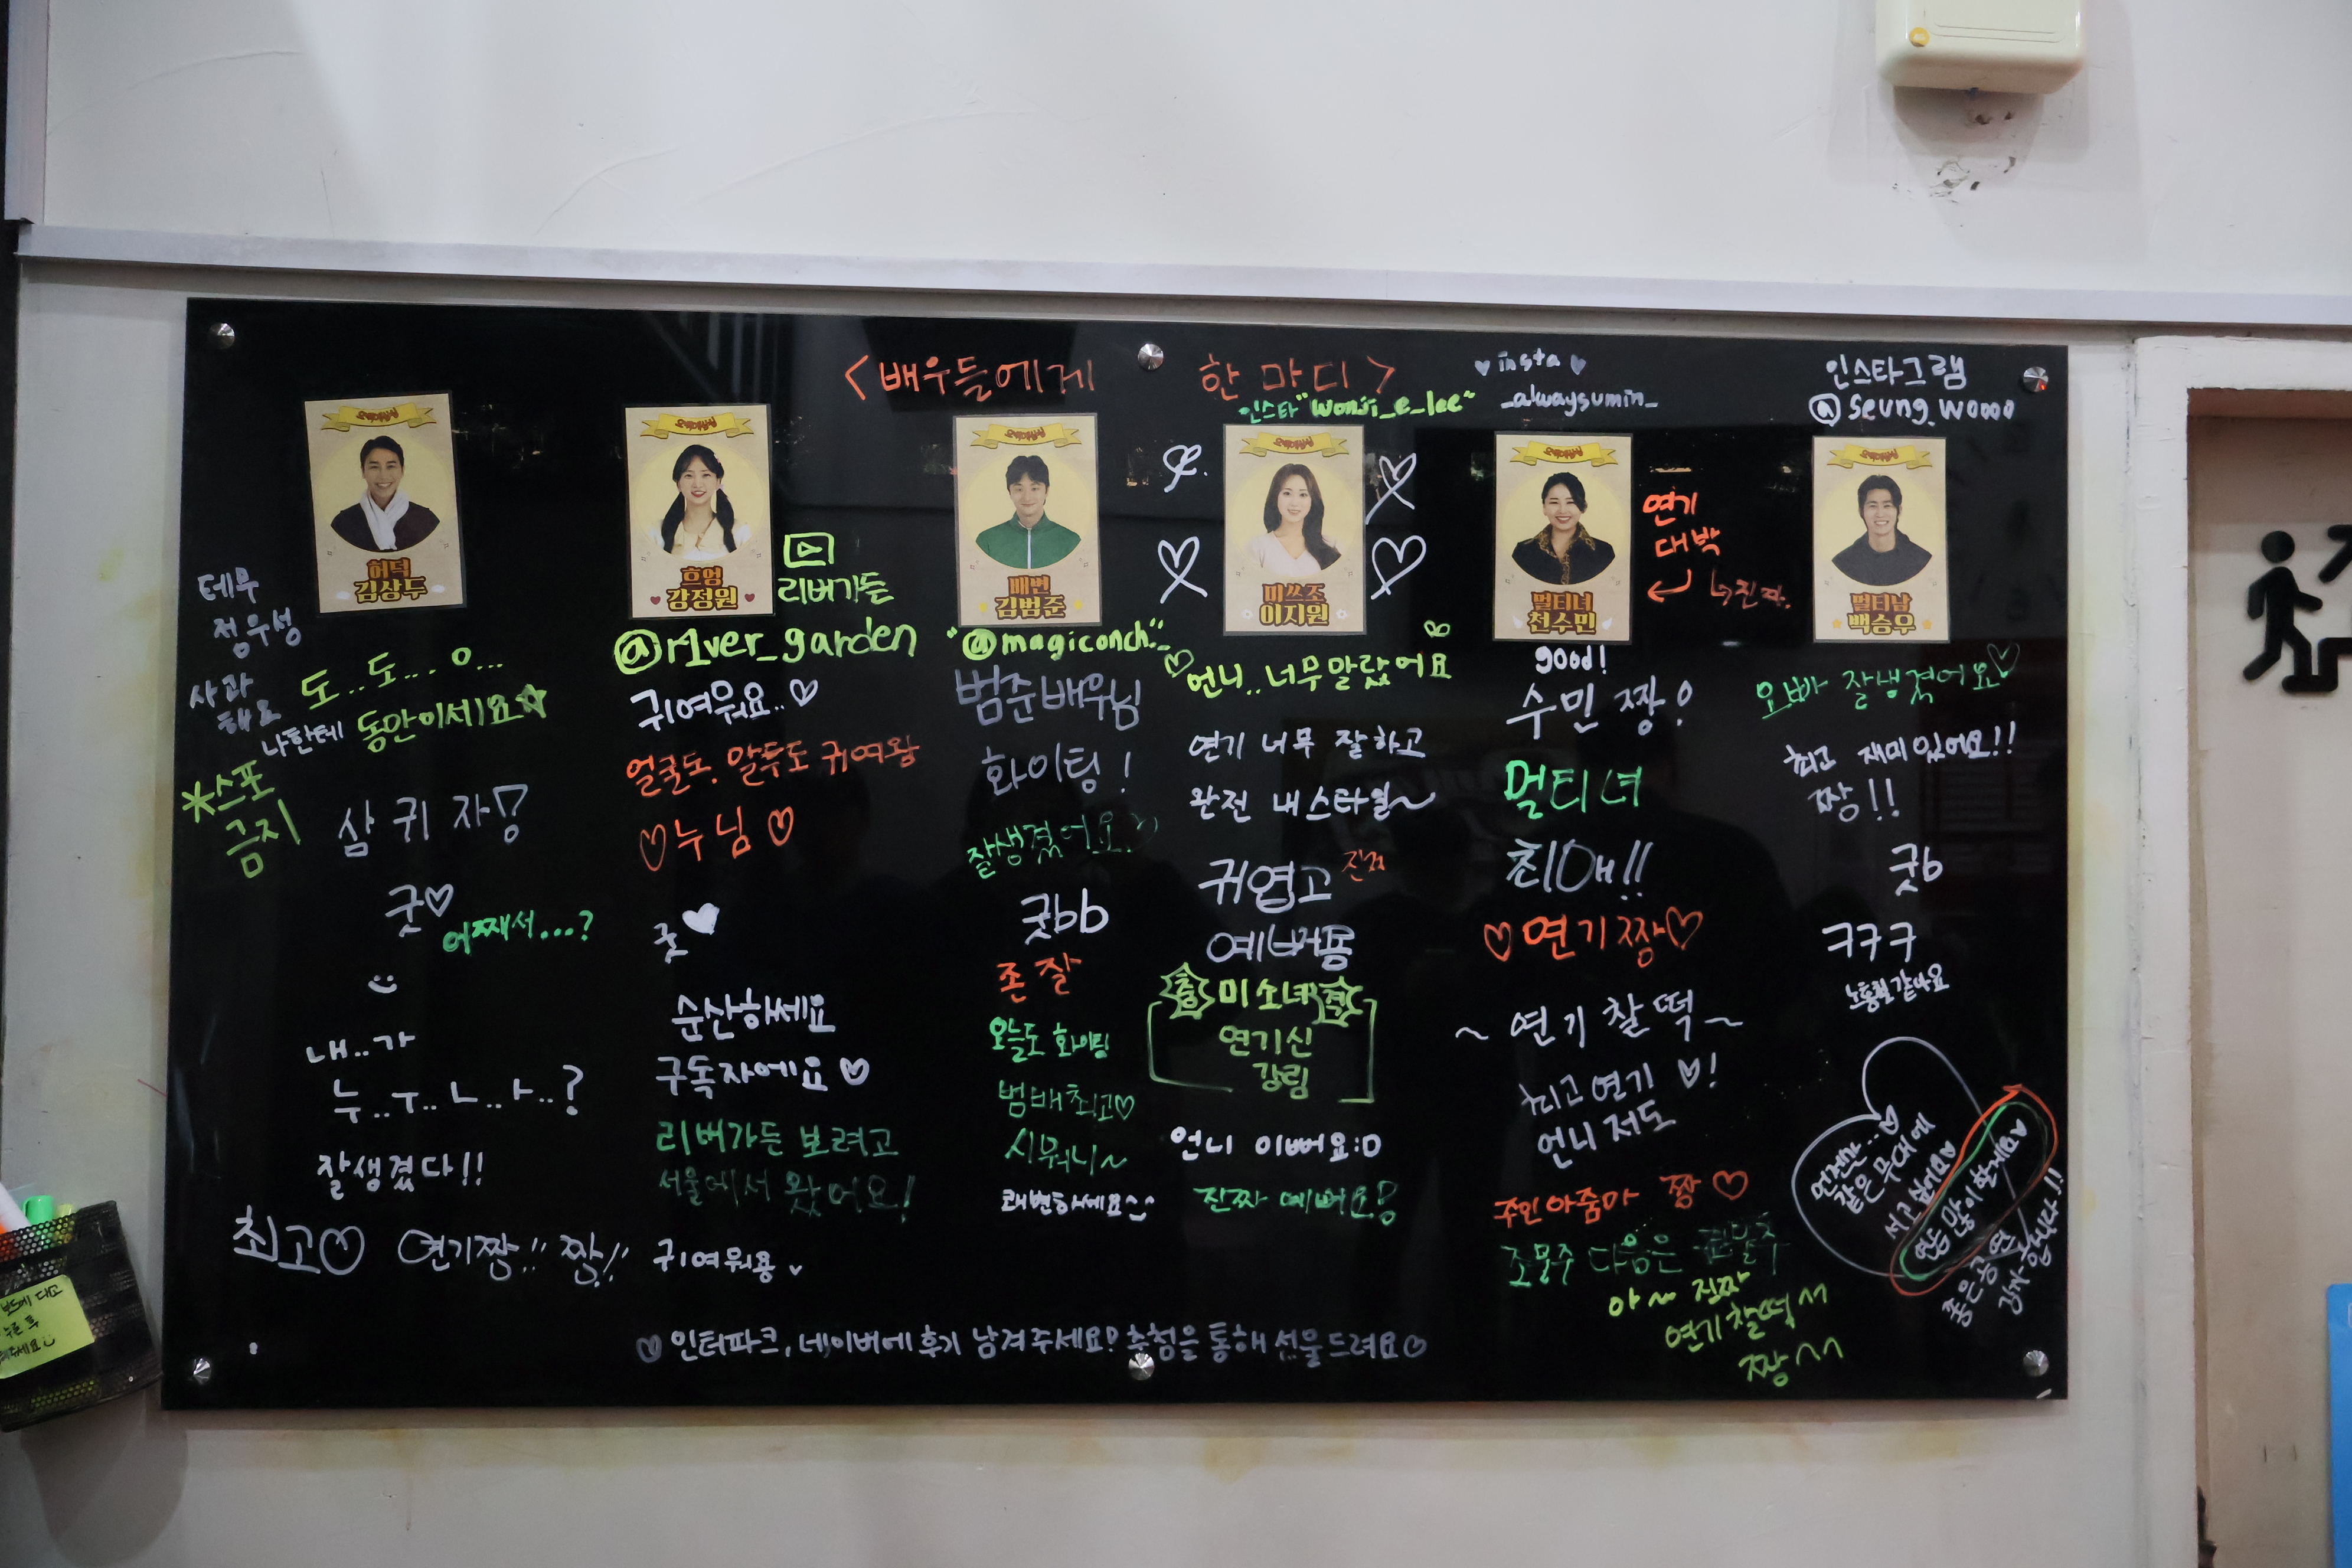 <배우들에게 한 마디>
인스타 "wonji_e_lee"
♥ insta ♥
_alwaysumin_
인스타그램
@seung_woooo
오백에삼십
허덕
김상두
오백에삼십
흐엉
강정원
오백에삼십
배변
김범준
오백에삼십
미쓰조
이지원
오백에삼십
멀티녀
천수민
오백에삼십
멀티남
백승우
테무
정우성
사과
해요
나한테
도..도...ㅇ...
동만이세요☆
*스포
금지
삼 귀 자!
굿♡
어째서...?
내..가
누..ㅜ..ㄴ..ㅏ..?
잘생겼다!!
최고♡
연기짱!! 짱!!
리버가든
@r1ver_garden
귀여워요..♡
얼굴도, 말투도 귀여왕
♡누님♡
굿♥
순산하세요
구독자에요♡
리버가든 보려고
서울에서 왔어요!
귀여워용
"@magiconch"
범준배우님
화이팅!
잘생겼어요?
굿bb
존잘
오늘도 화이팅
범배최고♡
시뭐니~
쾌변하세요^^
♡언니..너무말랐어요
연기 너무 잘하고
완전 내스타일~
귀엽고 진짜
예뻐용
미소녀
연기신
강림
언니 이뻐요:D
진짜 예뻐요!
연기
대박
↳진짜.
good!
수민 짱!
멀티녀
최애!!
♡연기짱♡
~연기찰떡~
최고연기♡!
언니저도
주인아줌마 짱♡
조물주 다음은 건물주
아~ 진짜
연기찰떡
짱^^
오빠 잘생겼어요♡
최고 재미있어요!!
짱!!
굿b
ㅋㅋㅋ
노홍철같아요
언젠간...♡
같은무대에
서고싶어요♡
연습 많이 할게요♥
좋은공연
감사합니다!!
♡인터파크, 네이버에 후기 남겨주세요! 추첨을 통해 선물드려요♡